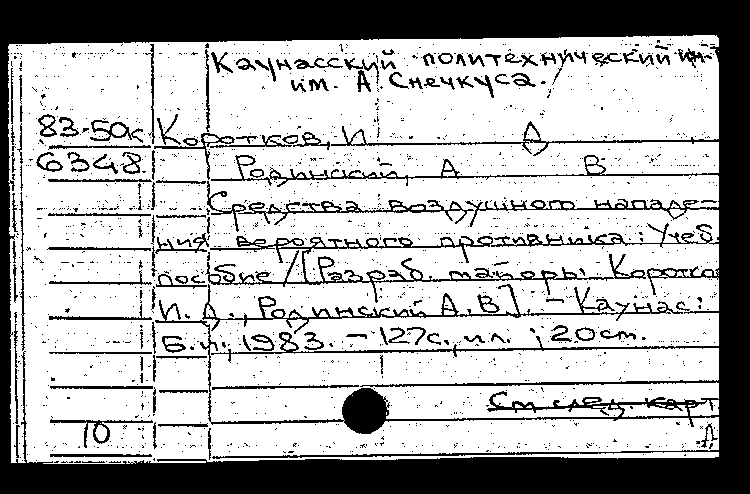 Каунасский политехнический ин-т
им. А. Снечкуса.
83-50к Коротков, И Д
6348 Родинский, А В
Средства воздушного нападе-
ния вероятного противника: Учеб.
пособие / [Разраб. майоры Коротков
И. Д., Родинский А. В]. - Каунас:
Б.и., 1983. - 127с., ил. ; 20см.
См след. карт
10